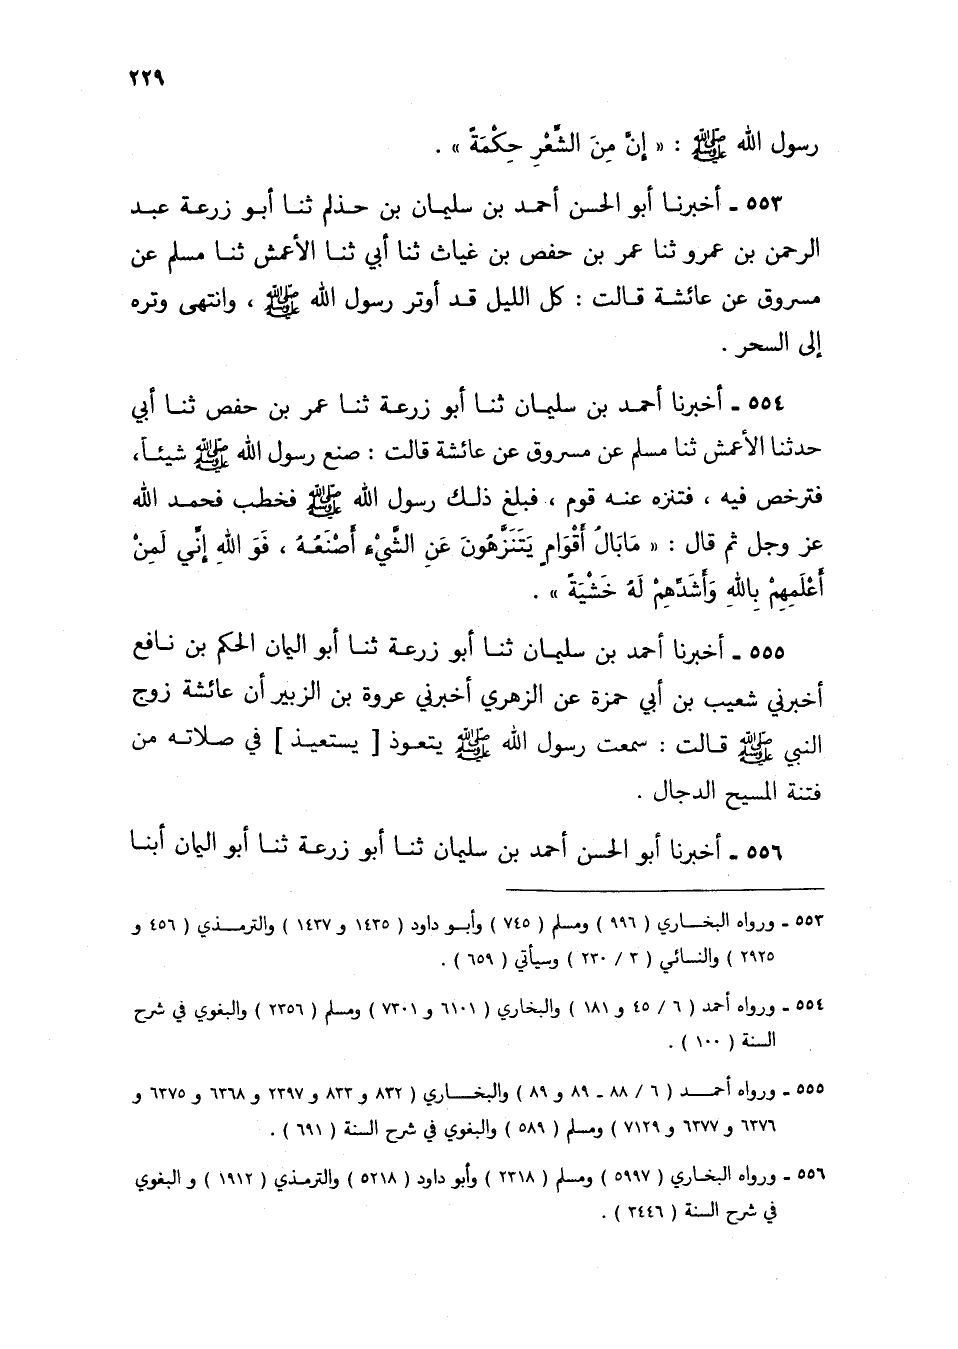 ٢٢٩
رسول الله ﷺ : « إِنَّ مِنَ الشِّعْرِ حِكْمَةً » .
٥٥٣ ـ أخبرنا أبو الحسن أحمد بن سليمان بن حذلم ثنا أبو زرعة عبد
الرحمن بن عمرو ثنا عمر بن حفص بن غياث ثنا أبي ثنا الأعمش ثنا مسلم عن
مسروق عن عائشة قالت : كل الليل قد أوتر رسول الله ﷺ ، وانتهى وتره
إلى السحر .
٥٥٤ ـ أخبرنا أحمد بن سليمان ثنا أبو زرعة ثنا عمر بن حفص ثنا أبي
حدثنا الأعمش ثنا مسلم عن مسروق عن عائشة قالت : صنع رسول الله ﷺ شيئاً،
فترخص فيه ، فتنزه عنه قوم ، فبلغ ذلك رسول الله ﷺ فخطب فحمد الله
عز وجل ثم قال : « مَابَالُ أَقْوَامٍ يَتَنَزَّهُونَ عَنِ الشَّيْءِ أَصْنَعُهُ ، فَوَ اللهِ إِنِّي لَمِنْ
أَعْلَمِهِمْ بِاللهِ وَأَشَدِّهِمْ لَهُ خَشْيَةً » .
٥٥٥ ـ أخبرنا أحمد بن سليمان ثنا أبو زرعة ثنا أبو اليمان الحكم بن نافع
أخبرني شعيب بن أبي حمزة عن الزهري أخبرني عروة بن الزبير أن عائشة زوج
النبي ﷺ قالت : سمعت رسول الله ﷺ يتعوذ [ يستعيذ ] في صلاته من
فتنة المسيح الدجال .
٥٥٦ ـ أخبرنا أبو الحسن أحمد بن سليمان ثنا أبو زرعة ثنا أبو اليمان أبنا
٥٥٣ ـ ورواه البخاري ( ٩٩٦ ) ومسلم ( ٧٤٥ ) وأبو داود ( ١٤٣٥ و ١٤٣٧ ) والترمذي ( ٤٥٦ و
٢٩٢٥ ) والنسائي ( ٣ / ٢٣٠ ) وسيأتي ( ٦٥٩ ) .
٥٥٤ ـ ورواه أحمد ( ٦ / ٤٥ و ١٨١ ) والبخاري ( ٦١٠١ و ٧٣٠١ ) ومسلم ( ٢٣٥٦ ) والبغوي في شرح
السنة ( ١٠٠ ) .
٥٥٥ ـ ورواه أحمد ( ٦ / ٨٨ ـ ٨٩ و ٨٩ ) والبخاري ( ٨٣٢ و ٨٣٣ و ٢٣٩٧ و ٦٣٦٨ و ٦٣٧٥ و
٦٣٧٦ و ٦٣٧٧ و ٧١٢٩ ) ومسلم ( ٥٨٩ ) والبغوي في شرح السنة ( ٦٩١ ) .
٥٥٦ ـ ورواه البخاري ( ٥٩٩٧ ) ومسلم ( ٢٣١٨ ) وأبو داود ( ٥٢١٨ ) والترمذي ( ١٩١٢ ) و البغوي
في شرح السنة ( ٣٤٤٦ ) .